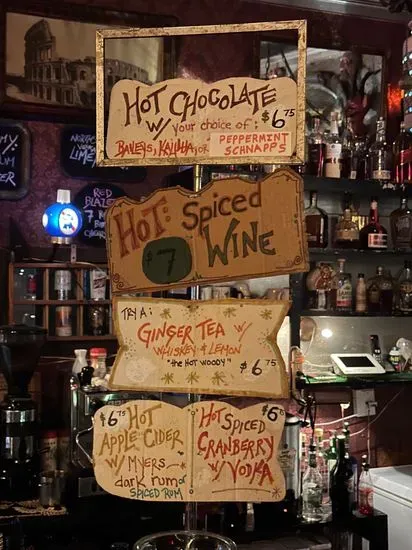 HOT CHOCOLATE $6.75
W/ your choice of:
BAILEYS, KAHLUA, or PEPPERMINT SCHNAPPS
HOT: Spiced
$7 WINE
TRY A:
GINGER TEA W/
WHISKEY & LEMON
"the HOT WOODY" $6.75
$6.75 HOT
APPLE CIDER
W/ MYERS
dark rum or
SPICED RUM
HOT SPICED $6.75
CRANBERRY
W/ VODKA
RED
BLAZE